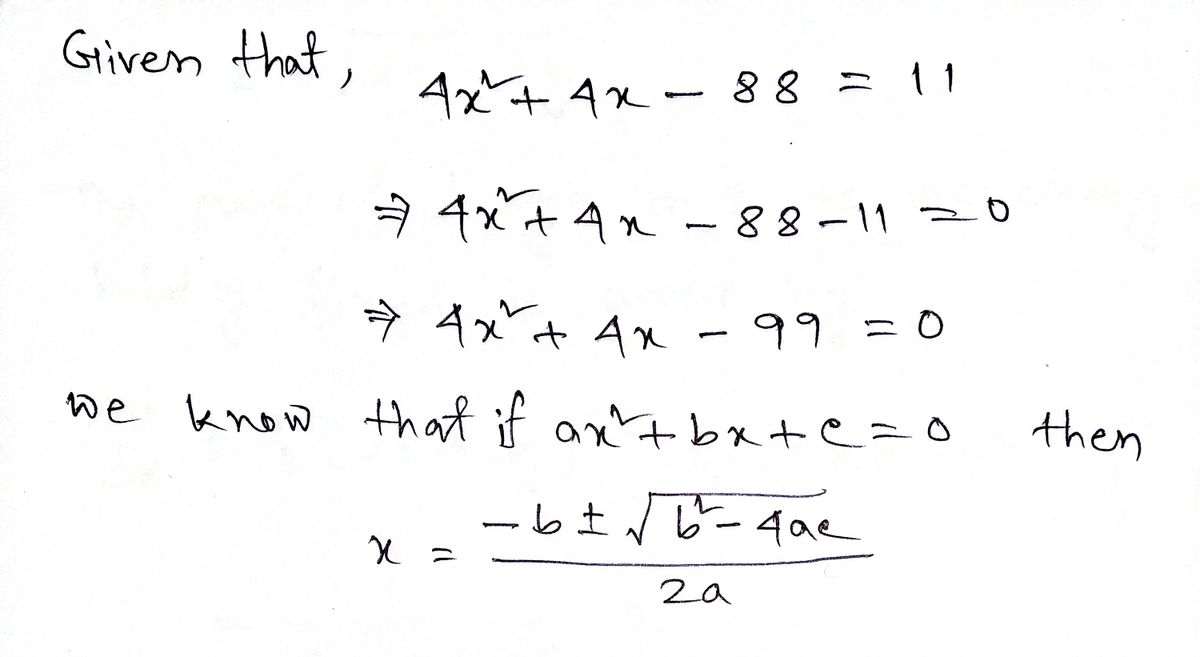 Given that, 4x² + 4x - 88 = 11
⇒ 4x² + 4x - 88 - 11 = 0
⇒ 4x² + 4x - 99 = 0
we know that if ax² + bx + c = 0 then
x = (-b ± √(b² - 4ac)) / 2a